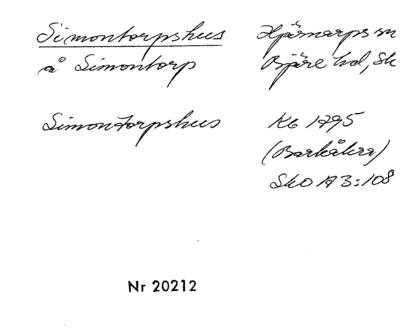 Simontorpshus Hjärnarps sn
å Simontorp Bjäre hd, Sk
Simontorpshus Kb 1795
(Barkåkra)
Sko A 3:108
Nr 20212